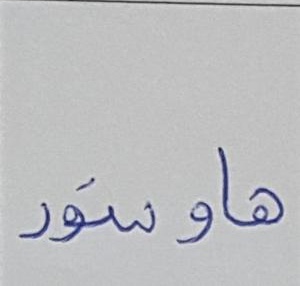 هاو سنور